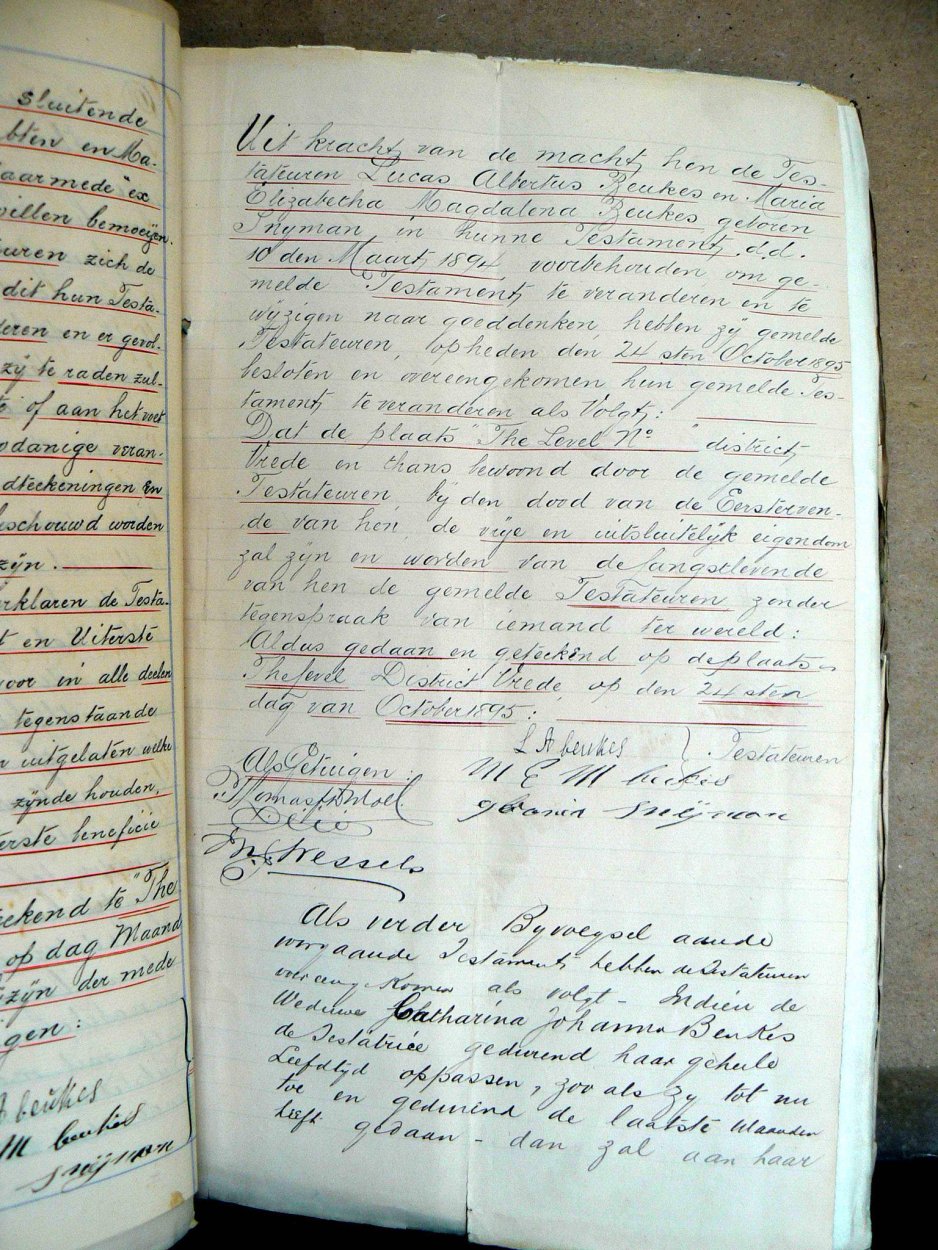 sluitende
bten en Ma-
aarmede "ex
willen bemoeijen.
uren zich de
dit hun Testa-
deren en er gevol-
zÿ te raden zul-
of aan het voet
odanige veran-
dteekeningen en
beschouwd worden
zÿn.
erklaren de Testa-
t en Uiterste
voor in alle deelen
tegenstaande
n uitgelaten welke
zÿnde houden,
erste beneficie
eekend te "The
op dag Maand
zÿn der mede
gen:
A beukes
M beukes
snijman
Uit kracht van de macht, hen de Tes-
tateuren Lucas Albertus Beukes en Maria
Elizabetha Magdalena Beukes geboren
Snyman, in hunne Testament d.d.
10 den Maart 1894 voorbehouden om ge-
melde Testament te veranderen en te
wÿzigen naar goeddenken, hebben zÿ gemelde
Testateuren, op heden den 24 sten October 1895
besloten en overeengekomen hun gemelde Tes-
tament te veranderen als Volgt:
Dat de plaats "The Level No " district
Vrede en thans bewoond door de gemelde
Testateuren, bÿ den dood van de Eersterven-
de van hen, de vrije en uitsluitelÿk eigendom
zal zÿn en worden van de langstlevende
van hen de gemelde Testateuren zonder
tegenspraak van iemand ter wereld:
Aldus gedaan en geteekend op de plaats
The Level District Vrede, op den 24 sten
dag van October 1895:
L A beukes } Testateuren
Als Getuigen:
M E M beukes
snijman
Wessels
Als verder Byvoegsel aande
voorgaande Testament, hebben de Testateuren
overeng Komen als volgt - Indien de
Weduwe Catharina Johanna Beukes
de Testatrice gedurend haar geheele
Leeftyd oppassen, zoo als zy tot nu
toe en gedurend de laatste Maanden
heeft gedaan - dan zal aan haar